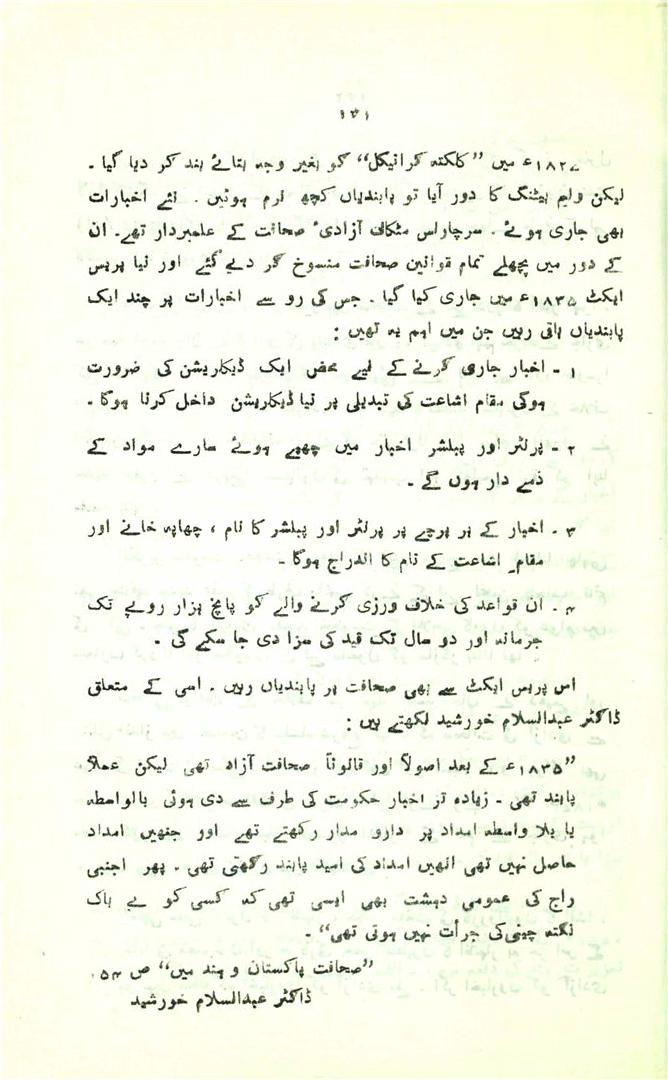 ۱۳۱
۱۸۲۷ء میں ”کلکتہ کرانیکل“ کو بغیر وجہ بتائے بند کر دیا گیا ۔
لیکن ولیم بیٹنگ کا دور آیا تو پابندیاں کچھ نرم ہوئیں ۔ نئے اخبارات
بھی جاری ہوئے ۔ سرچارلس مٹکاف آزادیٔ صحافت کے علمبردار تھے۔ ان
کے دور میں پچھلے تمام قوانین صحافت منسوخ کر دیے گئے اور نیا پریس
ایکٹ ۱۸۳۵ء میں جاری کیا گیا ۔ جس کی رو سے اخبارات پر چند ایک
پابندیاں باقی رہیں جن میں اہم یہ تھیں :
۱ ۔ اخبار جاری کرنے کے لیے محض ایک ڈیکاریشن کی ضرورت
ہوگی مقام اشاعت کی تبدیلی پر نیا ڈیکاریشن داخل کرنا ہوگا ۔
۲ ۔ پرنٹر اور پبلشر اخبار میں چھپے ہوئے سارے مواد کے
ذمے دار ہوں گے ۔
۳ ۔ اخبار کے ہر پرچے پر پرنٹر اور پبلشر کا نام ، چھاپہ خانے اور
مقامِ اشاعت کے نام کا اندراج ہوگا ۔
۴ ۔ ان قواعد کی خلاف ورزی کرنے والے کو پانچ ہزار روپے تک
جرمانہ اور دو سال تک قید کی سزا دی جا سکے گی ۔
اس پریس ایکٹ سے بھی صحافت پر پابندیاں رہیں ۔ اسی کے متعلق
ڈاکٹر عبدالسلام خورشید لکھتے ہیں :
”۱۸۳۵ء کے بعد اصولاً اور قانوناً صحافت آزاد تھی لیکن عملاً
پابند تھی ۔ زیادہ تر اخبار حکومت کی طرف سے دی ہوئی بالواسطہ
یا بلا واسطہ امداد پر دارو مدار رکھتے تھے اور جنھیں امداد
حاصل نہیں تھی انھیں امداد کی امید پابند رکھتی تھی ۔ پھر اجنبی
راج کی عمومی دہشت بھی ایسی تھی کہ کسی کو بے باک
نکتہ چینی کی جرأت نہیں ہوتی تھی“ ۔
”صحافت پاکستان و ہند میں“ ص ۵۴،
ڈاکٹر عبدالسلام خورشید